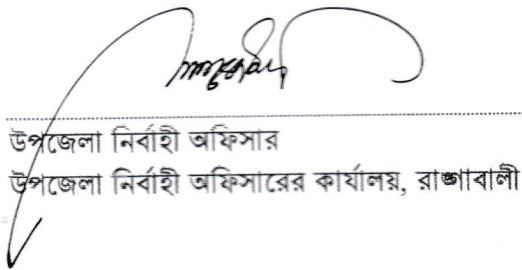 উপজেলা নির্বাহী অফিসার
উপজেলা নির্বাহী অফিসারের কার্যালয়, রাঙ্গাবালী